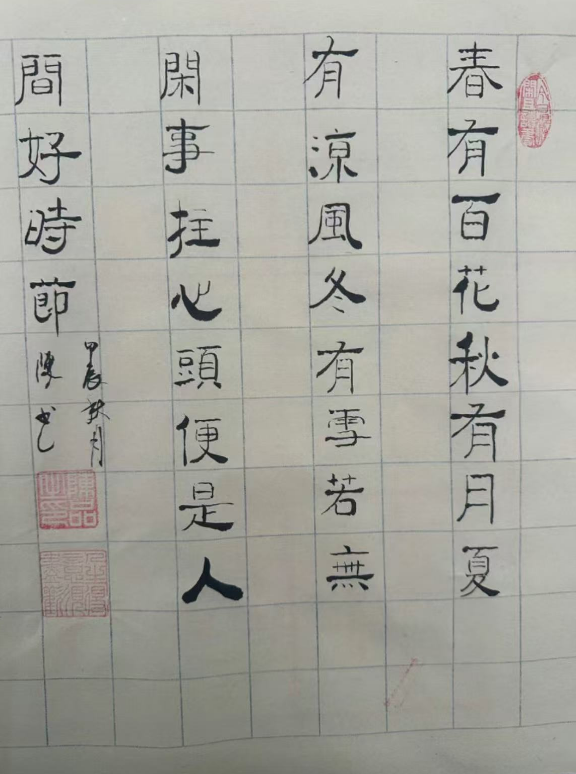 春有百花秋有月夏
有涼風冬有雪若無
閑事拄心頭便是人
間好時節
甲辰秋月
陳書